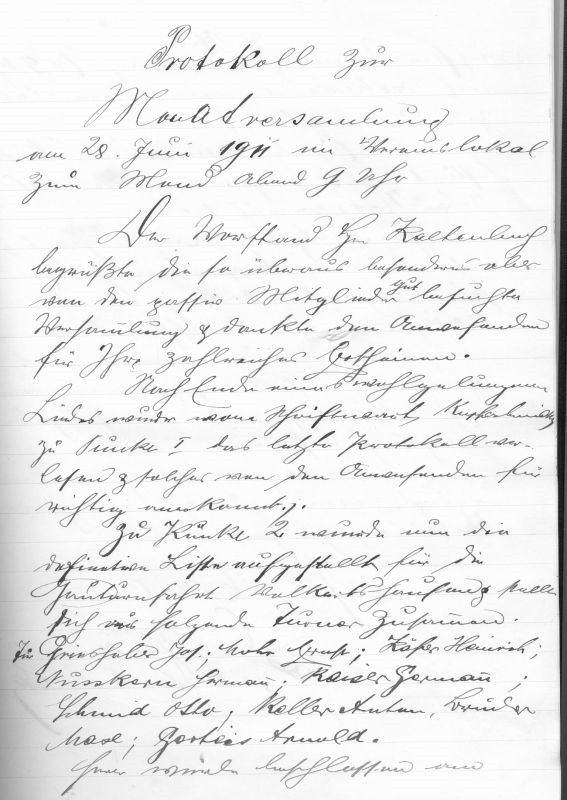 Protokoll zur
Monatversamlung
am 28. Juni 1911 im Vereinslokal
zum Mond abend 9 Uhr
Der Vorstand Hr Kaltenbach
begrüßte die so überaus besonders aber
von den passiv Mitglieder gut besuchte
Versamlung & dankte den Anwesenden
für Ihr zahlreiches Erscheinen.
Nach Ende eines wohlgelungenen
Liedes wurde vom Schriftwart
zu Punkt I das letzte Protokoll ver-
lesen & solches von den Anwesenden für
richtig anerkannt.
Zu Punkt 2 wurde nun die
definitive Liste aufgestellt für die
Gauturnfahrt
sich aus folgende Turner zusamen.
Grieshaber Jos.; Mohr Ernst; Käfer Heinrich;
Nusskern Herman; Kaiser Herman;
Schmid Otto; Keller Anton, Bruder
Max; Arnold.
wurde beschlossen am